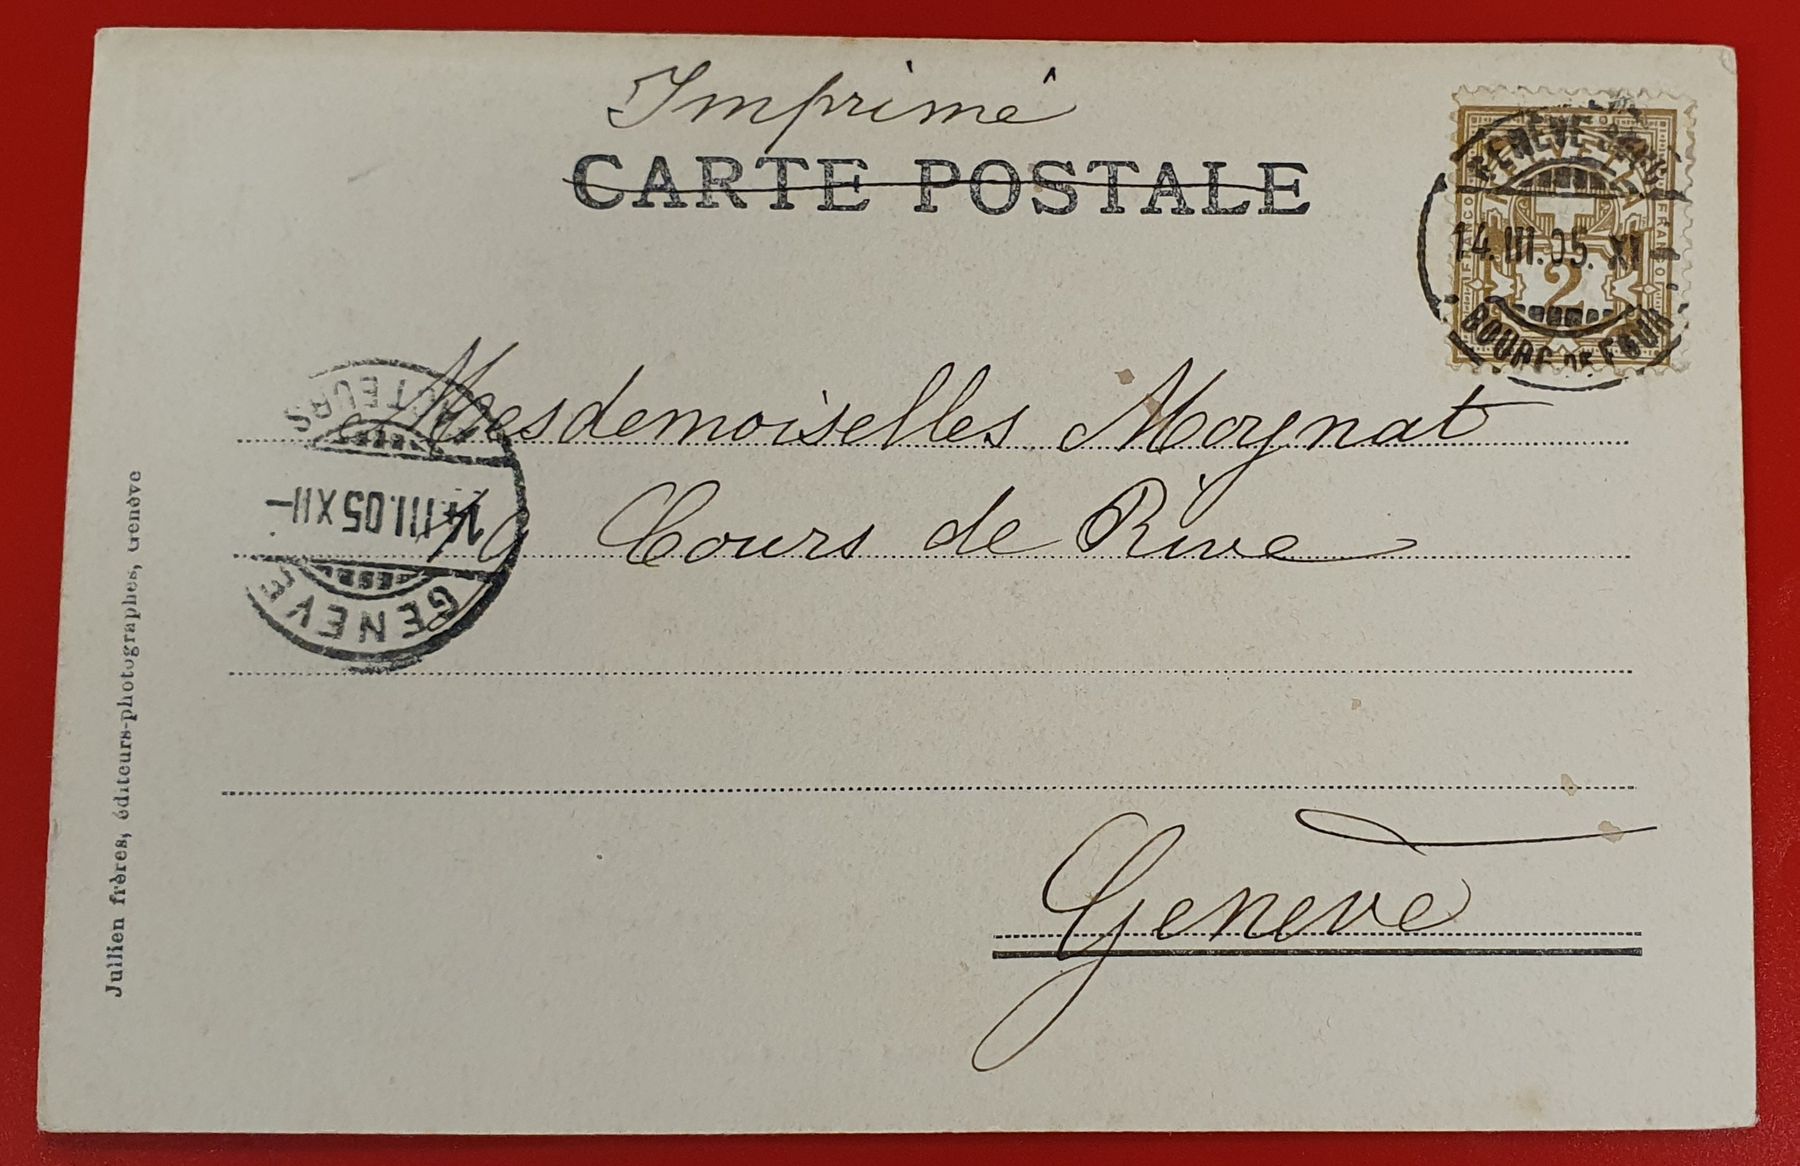 Imprimé
CARTE POSTALE
HELVETIA
FRANCO
FRANCO
2
GENÈVE
14.III.05. XI
BOURG DE FOUR
Mesdemoiselles Mognat
Cours de Rive
Genève
FACTEURS
14.III.05 XII
GENEVE
Jullien frères, éditeurs-photographes, Genève